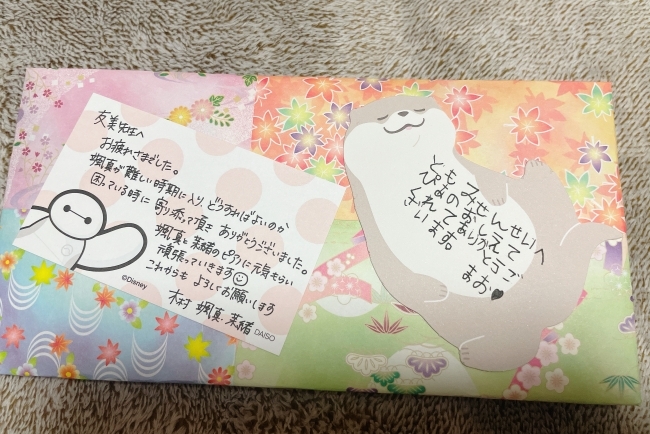 友美先生へ
お疲れさまでした。
颯真が難しい時期に入り、どうすればよいのか
困っている時に寄り添って頂き ありがとうございました。
颯真と茉緒のピアノに元気もらい
頑張っていきます
これからも よろしくお願いします
木村 颯真・茉緒
©Disney
DAISO
ともみせんせいへ
ぴあのおしえて
くれてありがとうご
ざいます
まお♥